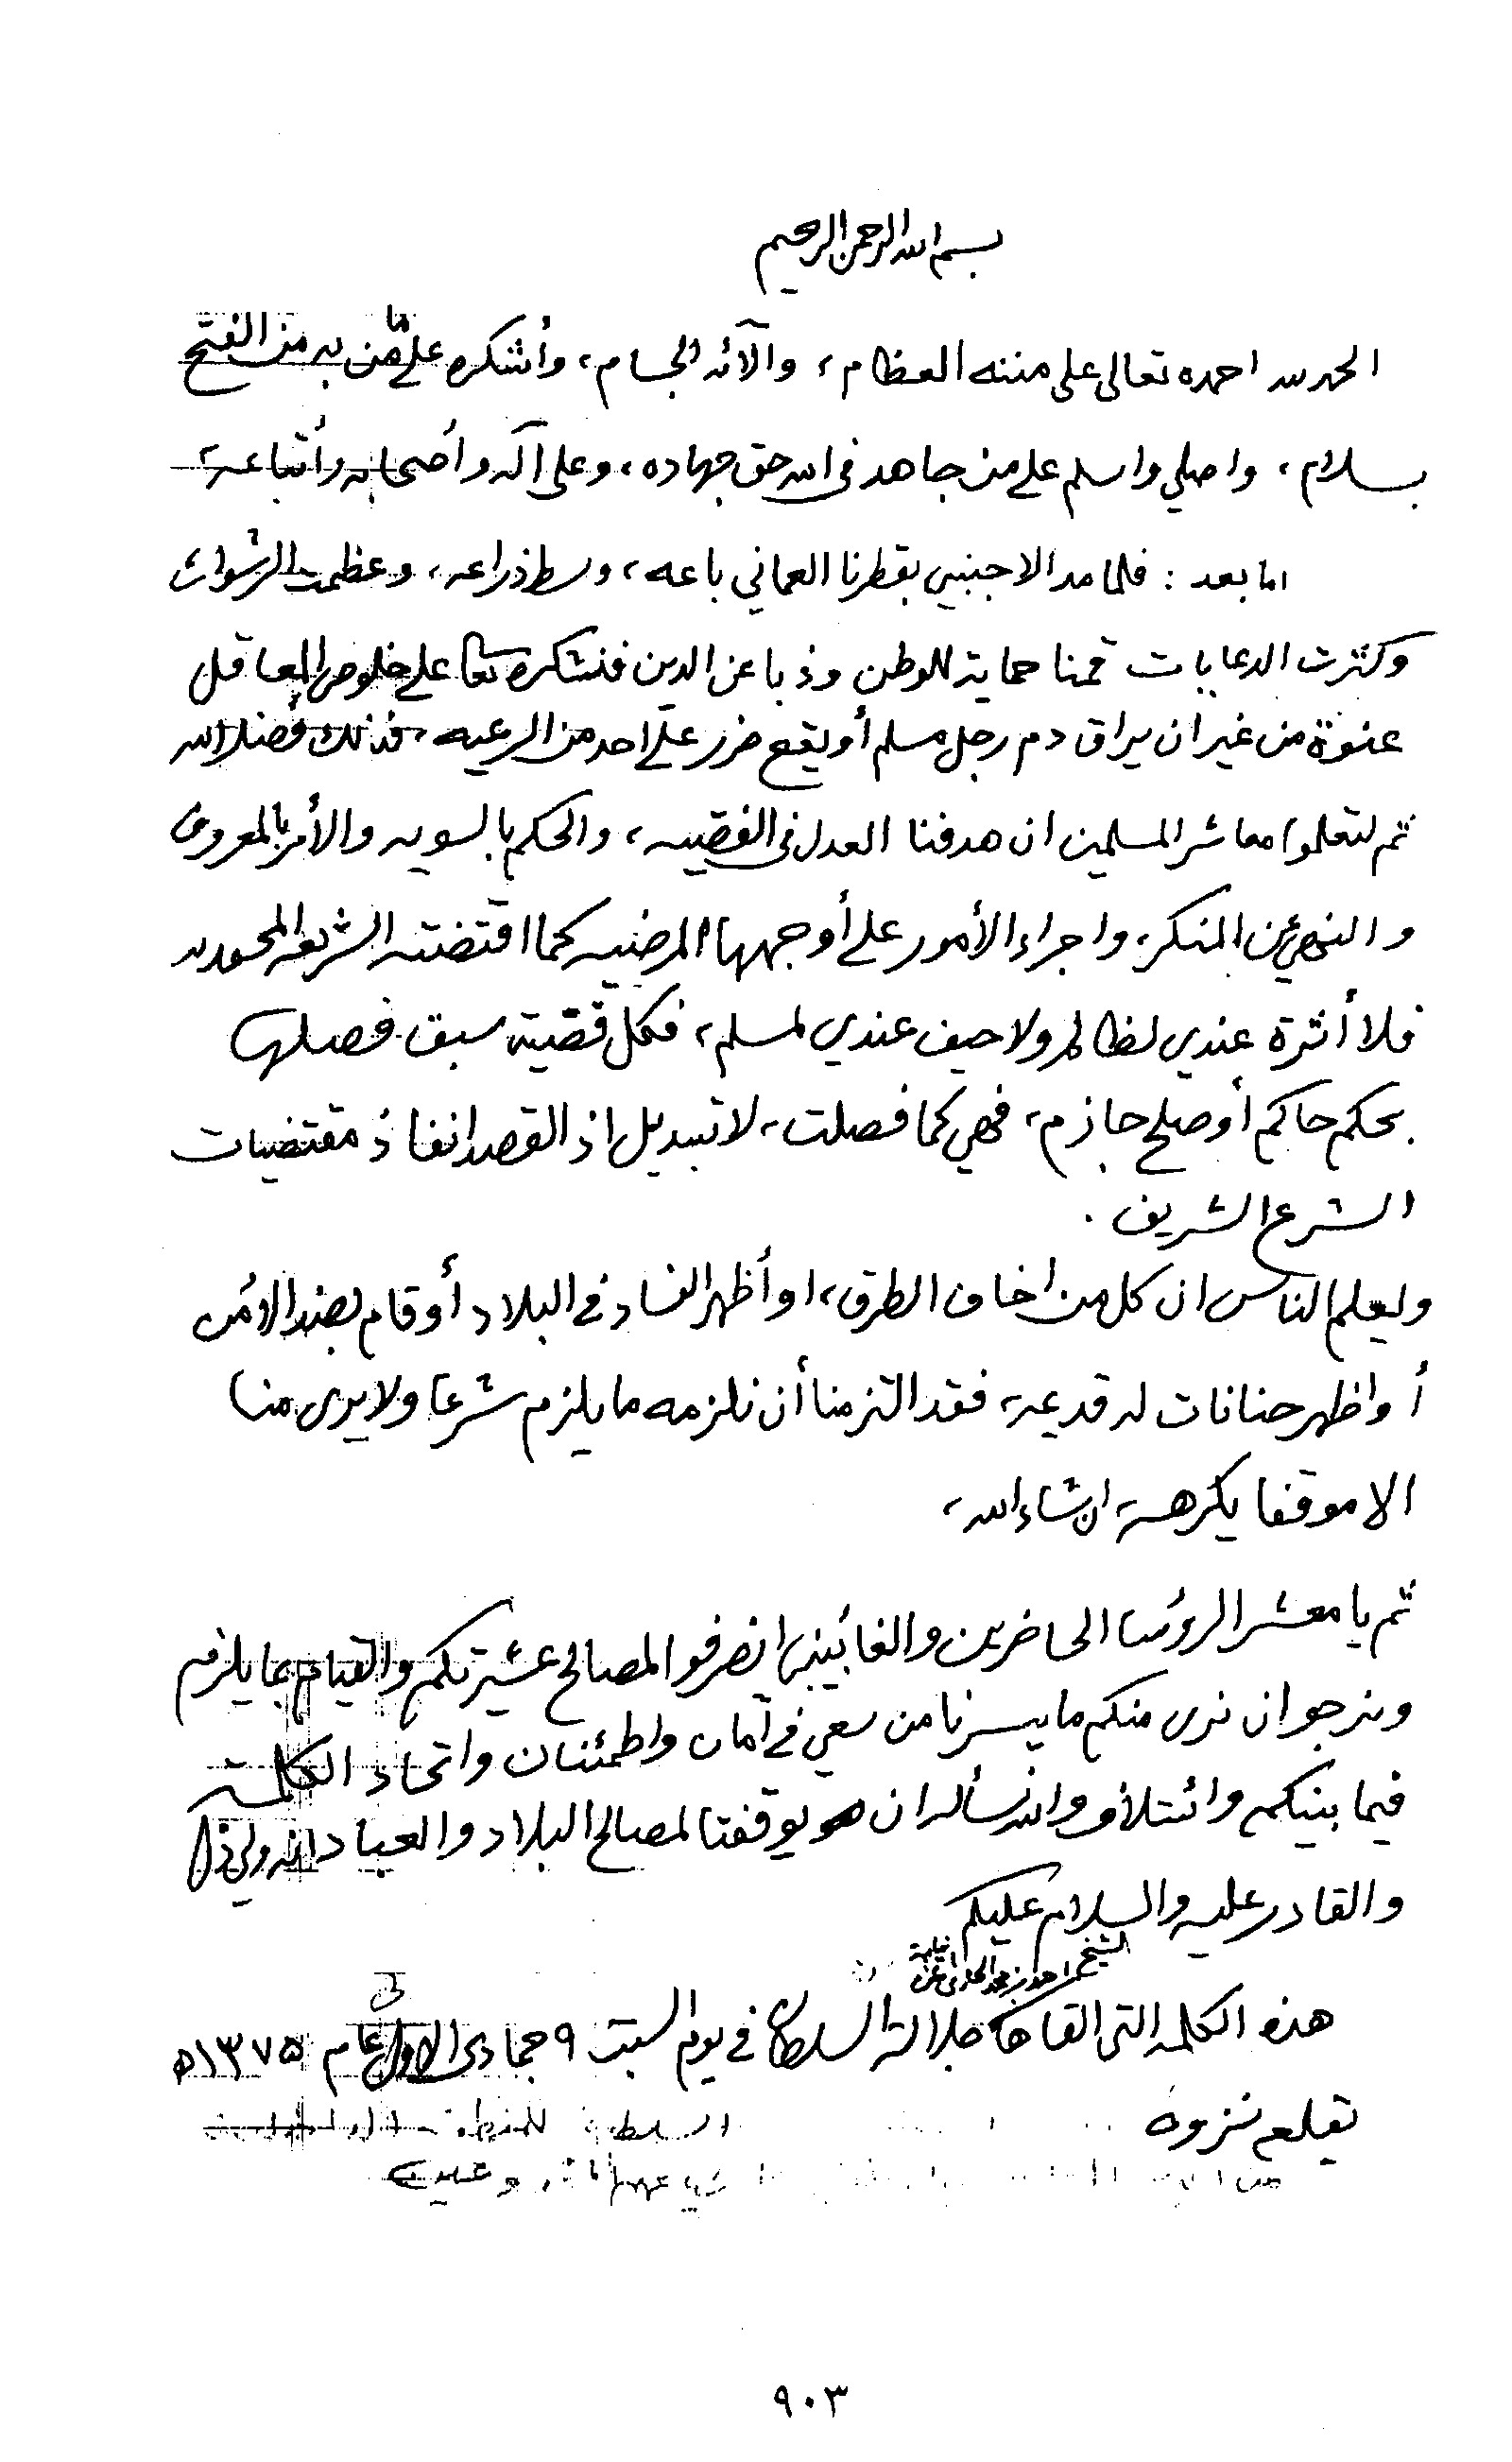 بسم الله الرحمن الرحيم
الحمد لله احمده تعالى على مننه العظام، وآلائه الجسام، وأشكره على ما من به من الفتح
بسلام، واصلي واسلم على من جاهد في الله حق جهاده، وعلى آله وأصحابه وأتباعه،
اما بعد : فلما مد الاجنبي بقطرنا العماني باعه، وبسط ذراعه، وعظمت الرشوات
وكثرت الدعايات قمنا حماية للوطن وذبا عن الدين فنشكره تعالى على خلوص المعاقل
عنوة من غير ان يراق دم رجل مسلم أو يقع ضرر على احد من الرعيه، فذلك فضل الله
ثم لتعلموا معاشر المسلمين ان هدفنا العدل في القضيه، والحكم بالسويه والأمر بالمعروف
والنهي عن المنكر، واجراء الأمور على أوجهها المرضيه كما اقتضته الشريعه المحمديه
فلا أثرة عندي لظالم ولا حيف عندي لمسلم، فكل قضية سبق فصلها
بحكم حاكم أو صلح جازم، فهي كما فصلت، لا تبديل اذ القصد انفاذ مقتضيات
الشرع الشريف .
وليعلم الناس ان كل من اخاف الطرق، او أظهر الفساد في البلاد أو قام بضد الأمن
أو اظهر ضنانات له قديمة، فقد التزمنا أن نلزمه ما يلزم شرعا ولا يرى منا
الا موقفا يكرهه ان شاء الله،
ثم يا معشر الرؤسا الحاضرين والغائبين انصرفوا لمصالح عشيرتكم والقيام بما يلزم
ونرجو ان نرى منكم ما يسرنا من سعي في أمان واطمئنان واتحاد الكلمة
فيما بينكم وائتلاف والله نسأله ان يوفقنا لمصالح البلاد والعباد انه ولي ذلك
والقادر عليه والسلام عليكم
الشيخ احمد بن محمد الحارثي نيابة عن
هذه الكلمه التي القاها جلالة السلطان في يوم السبت ٩ جمادى الاولى عام ١٣٧٥ه
بقلعة نزوه
٩٠٣